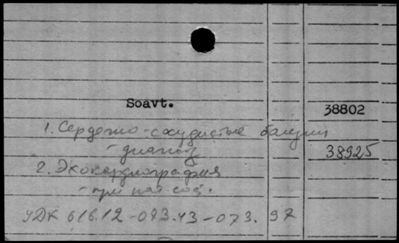 Soavt. 38802
1. Сердечно-сосудистые болезни
- диагноз 38925
2. Экокардиография
- при пат. сос.
УДК 616.12-073.43-073.97